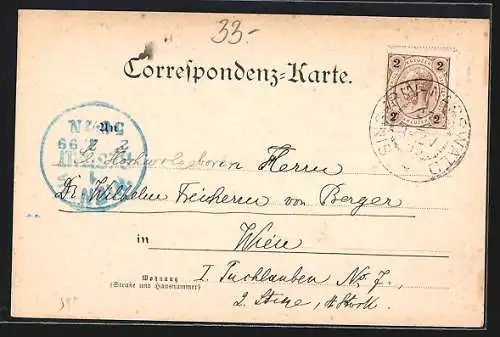 33.-
Correspondenz-Karte.
2 2
KREUZER
2 2
An
Sr. Hochwolgeboren Herrn
Dr. Wilhelm Freiherrn von Berger
in Wien
Wohnung
(Straße und Hausnummer)
I. Tuchlauben No 7,
2. Stiege, 4. Stock
WIEN
99